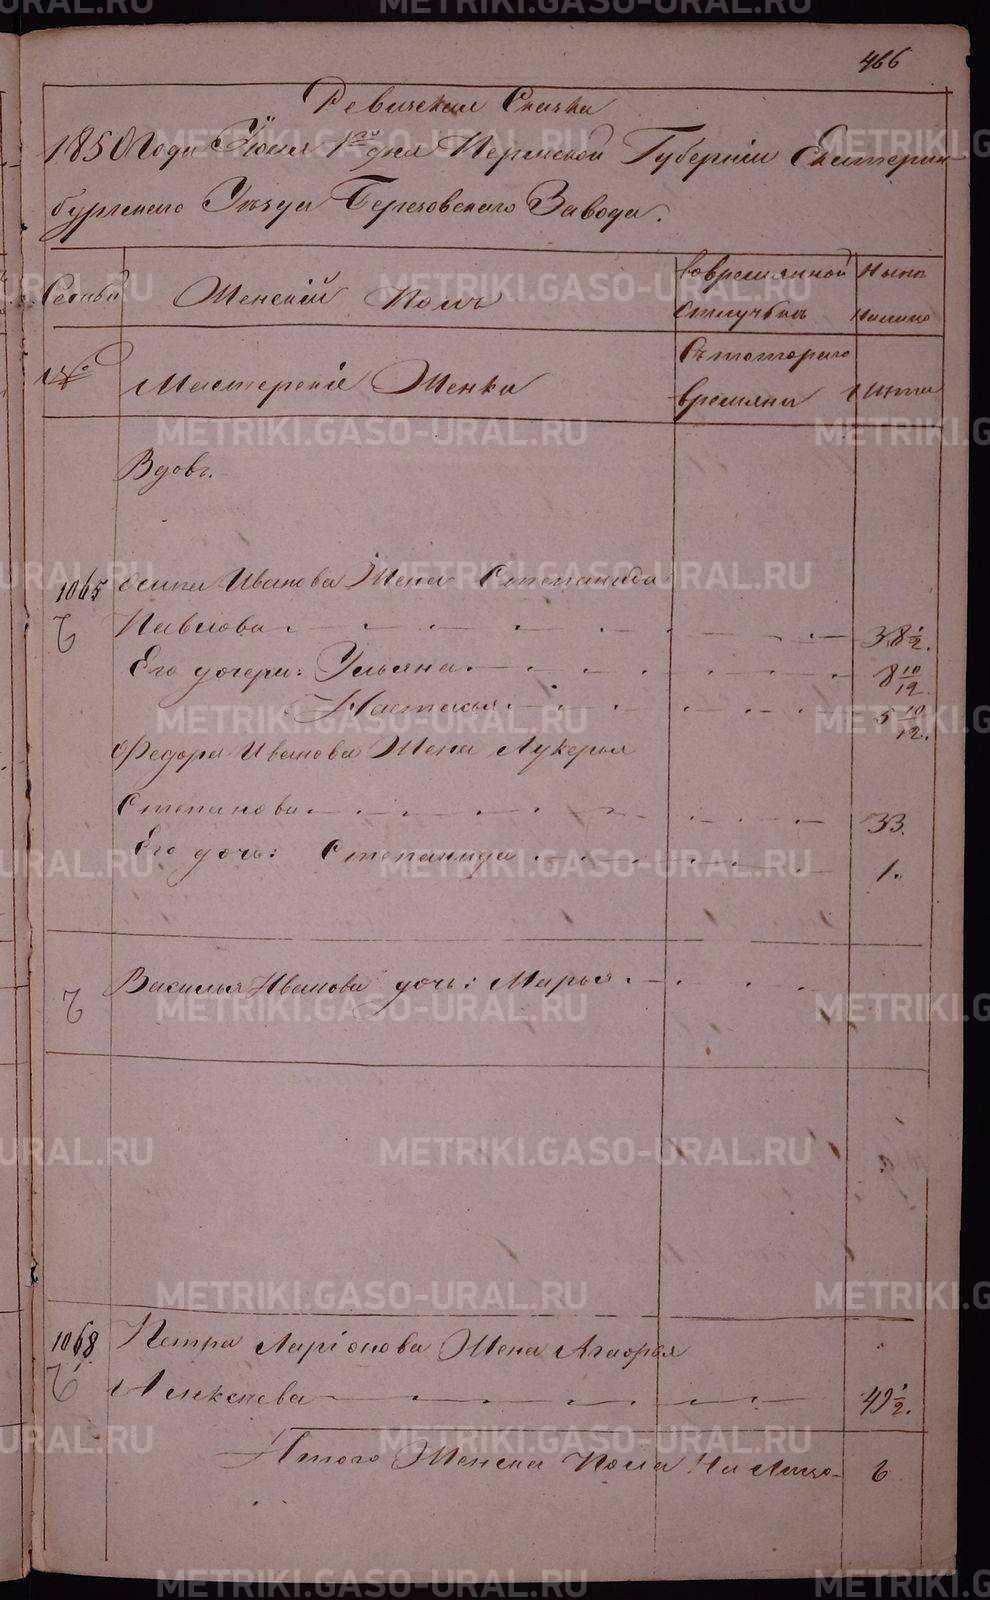 466
Ревижская Скаска
1850 Года Іюля 1го дня Пермской Губерніи Екатерин-
бургскаго Уѣзда Березовскаго Завода.
Семьи Женскій Полъ вовремянной Нынѣ
отлучкѣ налицо
№ Мастерскіе Женки Съ котораго
времяни Лѣта
Вдовъ.
1065 Осипа Иванова Жена Степанида
Павлова 38 1/2.
Его дочери: Ульяна 8 10/12
Настасья 5 10/12.
Федора Иванова Жена Лукерья
Степанова 33.
Его дочь: Степанида 1.
Василья Иванова дочь: Марья
1068 Петра Ларіонова Жена Агафья
Алексѣева 49 1/2.
Итого Женска Пола На Лицо 6
METRIKI.GASO-URAL.RU